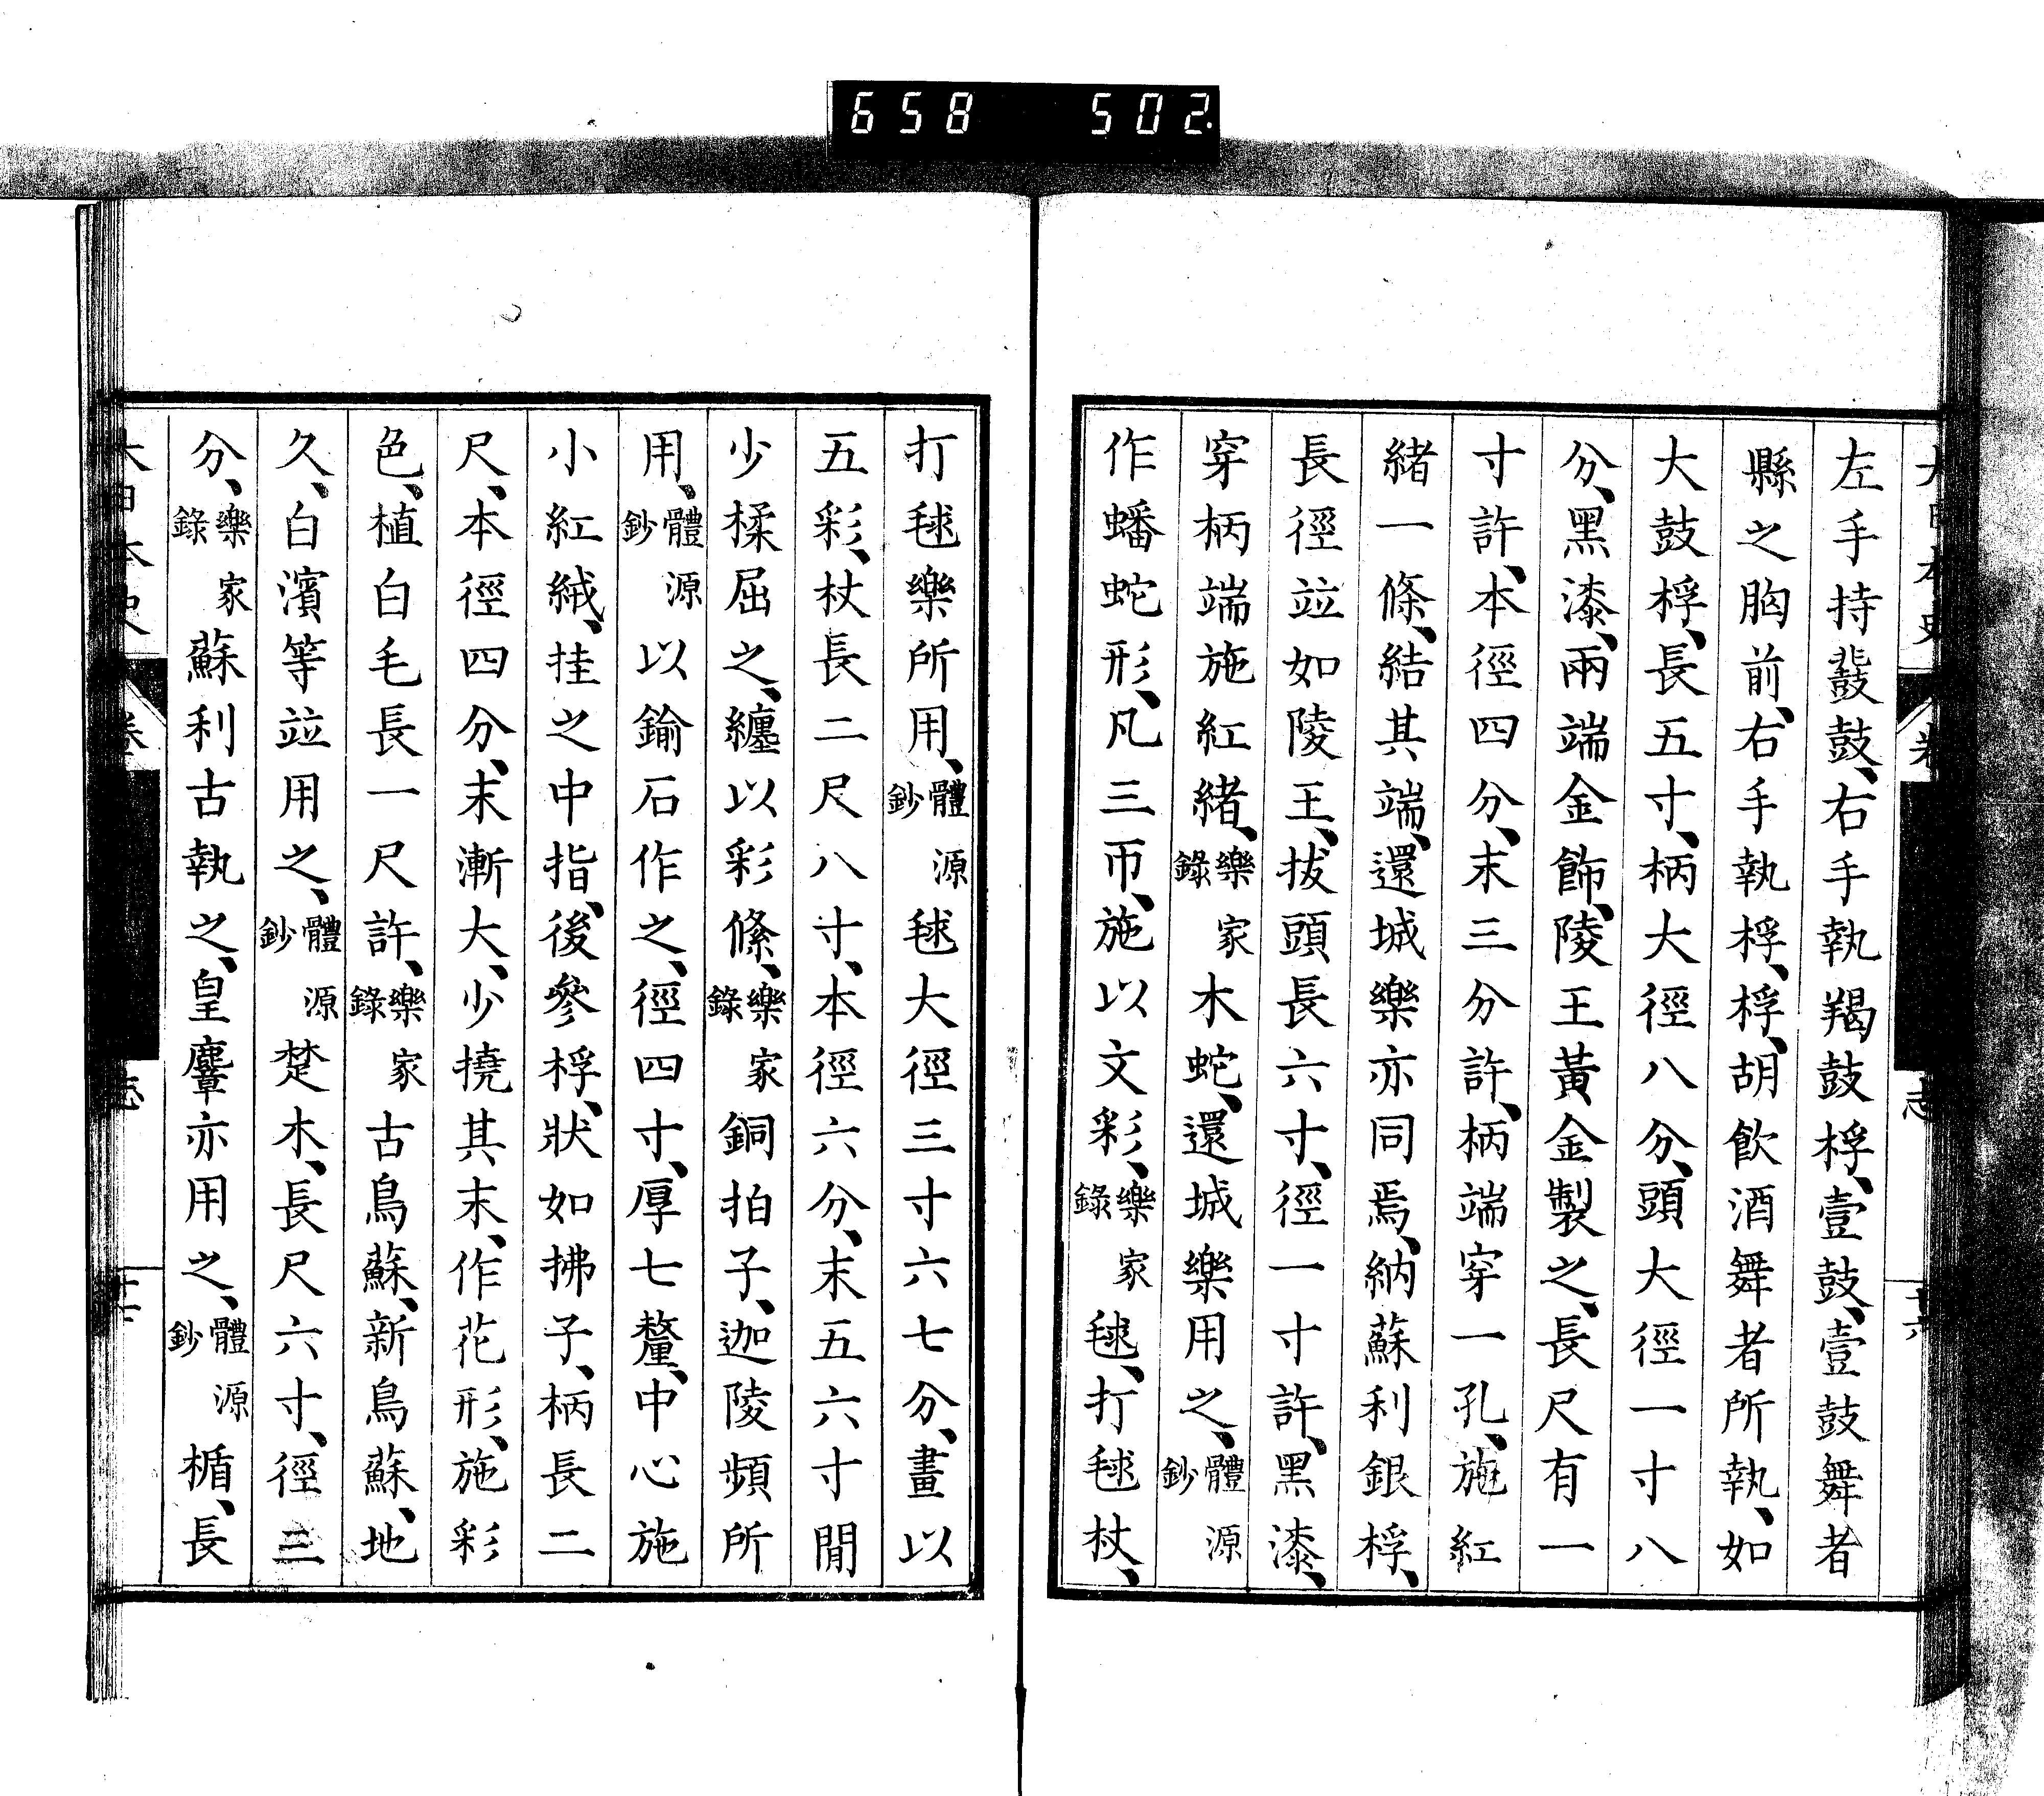 658 502.
左手持鼗鼓、右手執羯鼓桴、壹鼓、壹鼓舞者
縣之胸前、右手執桴、桴、胡飲酒舞者所執、如
大鼓桴、長五寸、柄大徑八分、頭大徑一寸八
分、黑漆、兩端金飾、陵王黃金製之、長尺有一
寸許、本徑四分、末三分許、柄端穿一孔、施紅
緒一條、結其端、還城樂亦同焉、納蘇利銀桴、
長徑竝如陵王、拔頭長六寸、徑一寸許、黑漆、
穿柄端施紅緒、樂家錄木蛇、還城樂用之、體源鈔
作蟠蛇形、凡三帀、施以文彩、樂家錄毬、打毬杖、
打毬樂所用、體源鈔毬大徑三寸六七分、畫以
五彩、杖長二尺八寸、本徑六分、末五六寸閒
少揉屈之、纏以彩絛、樂家錄銅拍子、迦陵頻所
用、體源鈔以鍮石作之、徑四寸、厚七釐、中心施
小紅絨、挂之中指、後參桴、狀如拂子、柄長二
尺、本徑四分、末漸大、少撓其末、作花形、施彩
色、植白毛長一尺許、樂家錄古鳥蘇、新鳥蘇、地
久、白濱等竝用之、體源鈔楚木、長尺六寸、徑三
分、樂家錄蘇利古執之、皇麞亦用之、體源鈔楯、長
大日本史 卷 志